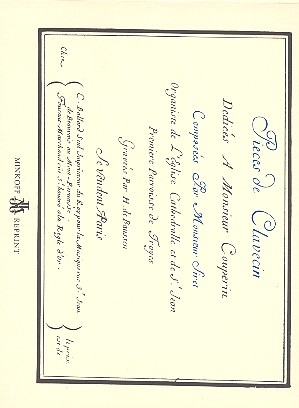 Pièces de Clavecin
Dediées A Monsieur Couperin
Composées Par Monsieur Siret
Organiste de L'Eglise Cathedralle et de St. Jean
Premiere Parroisse de Troyes
Gravées Par H. de Baussen
Se Vendent Paris
Chez
C. Ballard Seul Imprimeur du Roy pour la Musique rue St. Jean
de Beauvais au Mont Parnasse
Foucaut Marchand rue St. Honoré à la Regle d'or.
le prix
est de
MINKOFF REPRINT